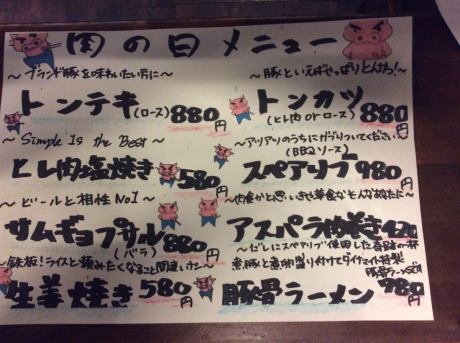 肉の日メニュー
～ブランド豚を味わいたい方に～
トンテキ(ロース)880円
～Simple Is the Best～
ヒレ肉塩焼き580円
～ビールと相性No1～
サムギョプサル(バラ)880円
～鉄板!ライスと頼みたくなること間違いナシ～
生姜焼き580円
～豚といえばやっぱりとんかつ!～
トンカツ(ヒレ肉orロース)880円
～アツアツのうちにガブリついてください～
(BBQソース)
スペアリブ980円
～肉食かと思いきや草食なそんなあなたに～
アスパラ肉巻き420
～だしにスペアリブを使用した奇跡の一杯
煮豚と煮卵盛り付けてダイナマイト特製
豚骨ラーメンです
豚骨ラーメン980円